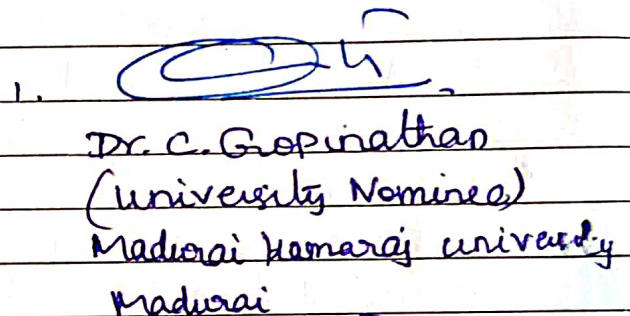 1.
Dr. C. Gopinathan
(University Nominee)
Madurai Kamaraj University
Madurai